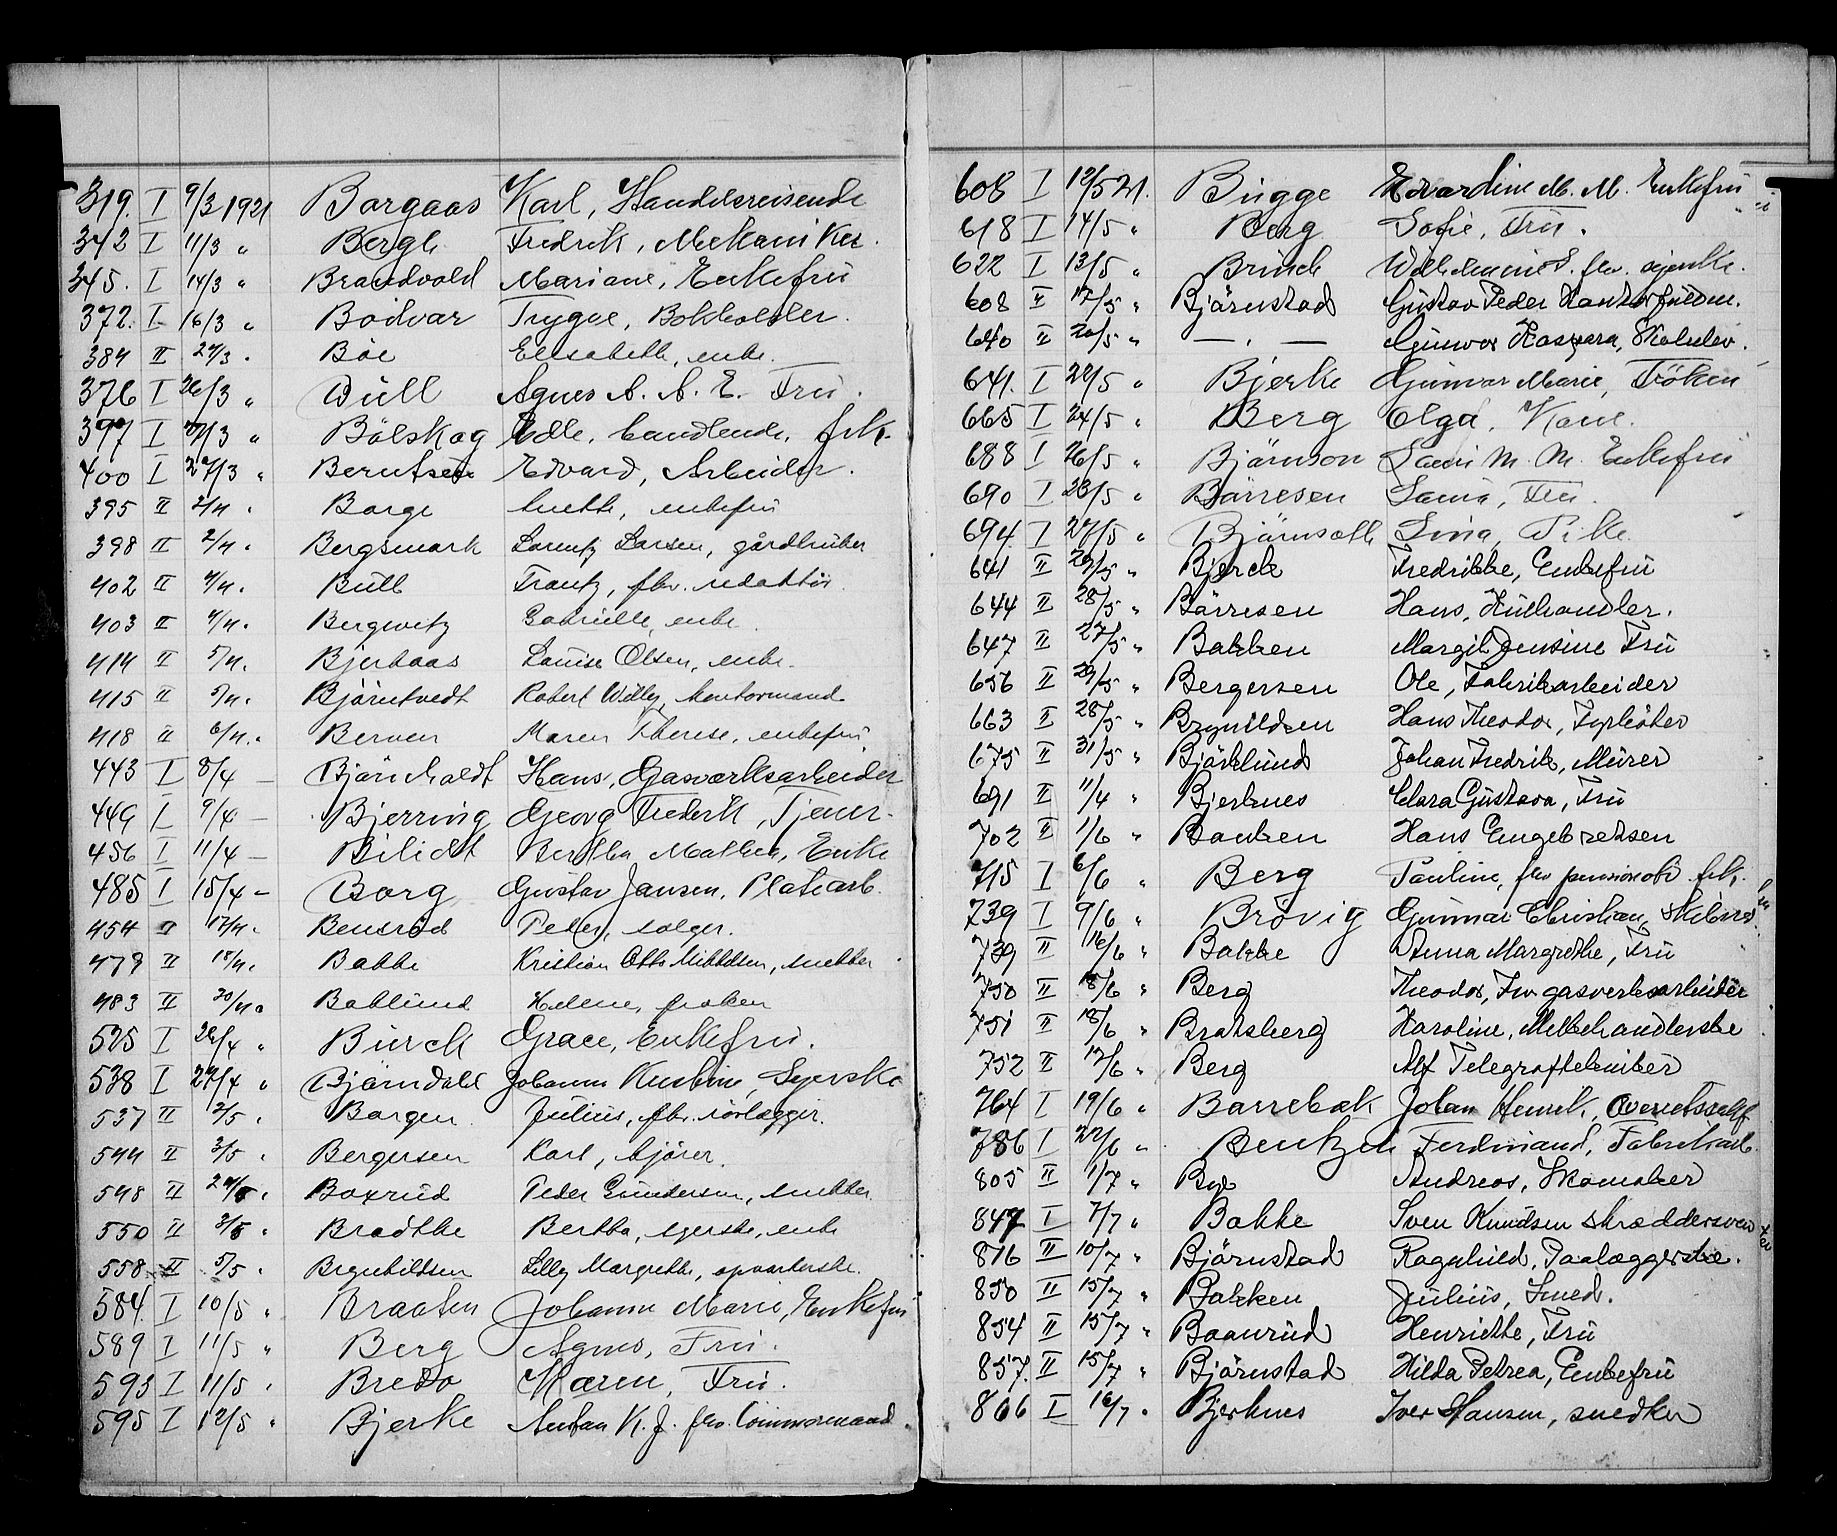 319. I 9/3 1921 Borgaas Karl, Handelsreisende
342 I 11/3 " Bergh Fredrik, Mekaniker.
345. I 14/3 " Brandvold Mariane, Enkefru
372. I 16/3 " Bödvar Trygve, Bokholder.
384 II 24/3 . Böe Elisabeth, enke.
376 I 26/3 " Bull Agnes A. A. E. Fru.
397 I /3 " Bölskog Edle, handlende, frk.
400 I 29/3 " Berntsen Edvard, Arbeider.
395 II 2/4 . Borge Anette, enkefru
398 II 2/4. Bergsmark Lorentz Larsen, gårdbruker
402 II 4/4. Bull Frantz, fhv. redaktör.
403 II 4/4. Bergwitz Gabrielle, enke.
414 II 5/4. Bjerkaas Louise Olsen, enke.
415 II 5/4. Björntvedt Robert Willy, kontormand
418 II 6/4. Berven Maren Therese, enkefru.
443 I 8/4 — Björnholdt Hans, Gasverksarbeider
449 I 9/4 — Bjerring Georg Frederik, Tjener.
456 I 11/4 — Bilidt Bertha Mathea, Enke
485 I 15/4 — Borg Gustav Jansen, Platearb.
454 II 12/4. Bensröd Peder, selger.
479 II 18/4. Bakke Kristian Otto Mikkelsen, snekker
483 II 20/4. Baklund Helene, frøken
525 I 28/4 " Burch Grace, Enkefru.
538 I 29/4 " Bjørndal Johanne Kristine, Syerske
537 II 2/5 . Borgen Julius, fhv. rörlegger.
544 II 3/5 . Bergersen Karl, kjörer.
548 II Boxrud Peder Gundersen, snekker
550 II 3/5 . Bradthe Bertha, syerske, enke
558 II 5/5 . Brynhildsen Lilly Margrethe, opvarterske.
584. I 10/5 " Braaten Johanne Marie, Enkefru
589 I 11/5 " Berg Agnes, Fru.
593 I 11/5 . Bredo Maren, Fru.
595 I 12/5 . Bjerke Anton K. J. fhv. tömmermand.
608 I 12/5 21. Bugge Edvardine M. M. Enkefru
618 I 14/5 " Berg Sofie, Fru.
622 I 13/5 " Brinch Wilhelmine S. fhv.
608 II 17/5 " Björnstad Gustav Peder Kontorfuldm.
640 II 20/5 " — . — Gunvor Kaspara, Skoleelev.
641. I 22/5 " Bjerke Gunvor Marie, Fröken
665 I 24/5 " Berg Olga, Kone.
688 I 26/5 " Björnson Laura M. M. Enkefru
690 I 28/5 " Börresen Laura, Fru.
694. I 27/5 " Björnseth Lina, Pike.
641 II 23/5 " Bjerck Fredrikke, Enkefru
644 II 28/5 " Börresen Hans, Kulhandler.
647 II 27/5 " Bakken Margit Jensine Fru
656 II 29/5 " Bergersen Ole, Fabrikarbeider
663 II 28/5 " Brynildsen Hans Theodor, Fyrböter
675 II 31/5 " Björklund Johan Fredrik, Murer
691 II 11/4 " Bjerknes Clara Gustava, Fru
702 II 1/6 " Bonken Hans Engebretsen
715 I 6/6 " Berg Pauline, fhv. frk.
739 I 9/6 " Brövig Gunnar Christian, Skibsred.
739 II 16/6 " Bakke Anna Margrethe, Fru
750 II 18/6 " Berg Theodor, Fhv gasverksarbeider
751 II 18/6 " Bratsberg Karoline, Melkehandlerske
752 II 17/6 " Berg Alf Telegraftekniker
764 I 19/6 " Barrebæk Johan Henrik, Overretssakf.
786 I 22/6 " Bentzen Ferdinand, Fabrikarb.
805 II 1/7 " Bye Andreas, Skomaker
847 I 7/7 " Bakke Sven Knudsen skreddersven
816 II 10/7 " Björnstad Ragnhild, Paalæggerske.
850 II 15/7 " Bakken Julius, Smed.
854 II 15/7 " Baanrud Henriette, Fru
857. II 15/7 " Björnstad Hilda Petrea, Enkefru
866 I 16/7 . Bjerknes Iver Hansen, snedker